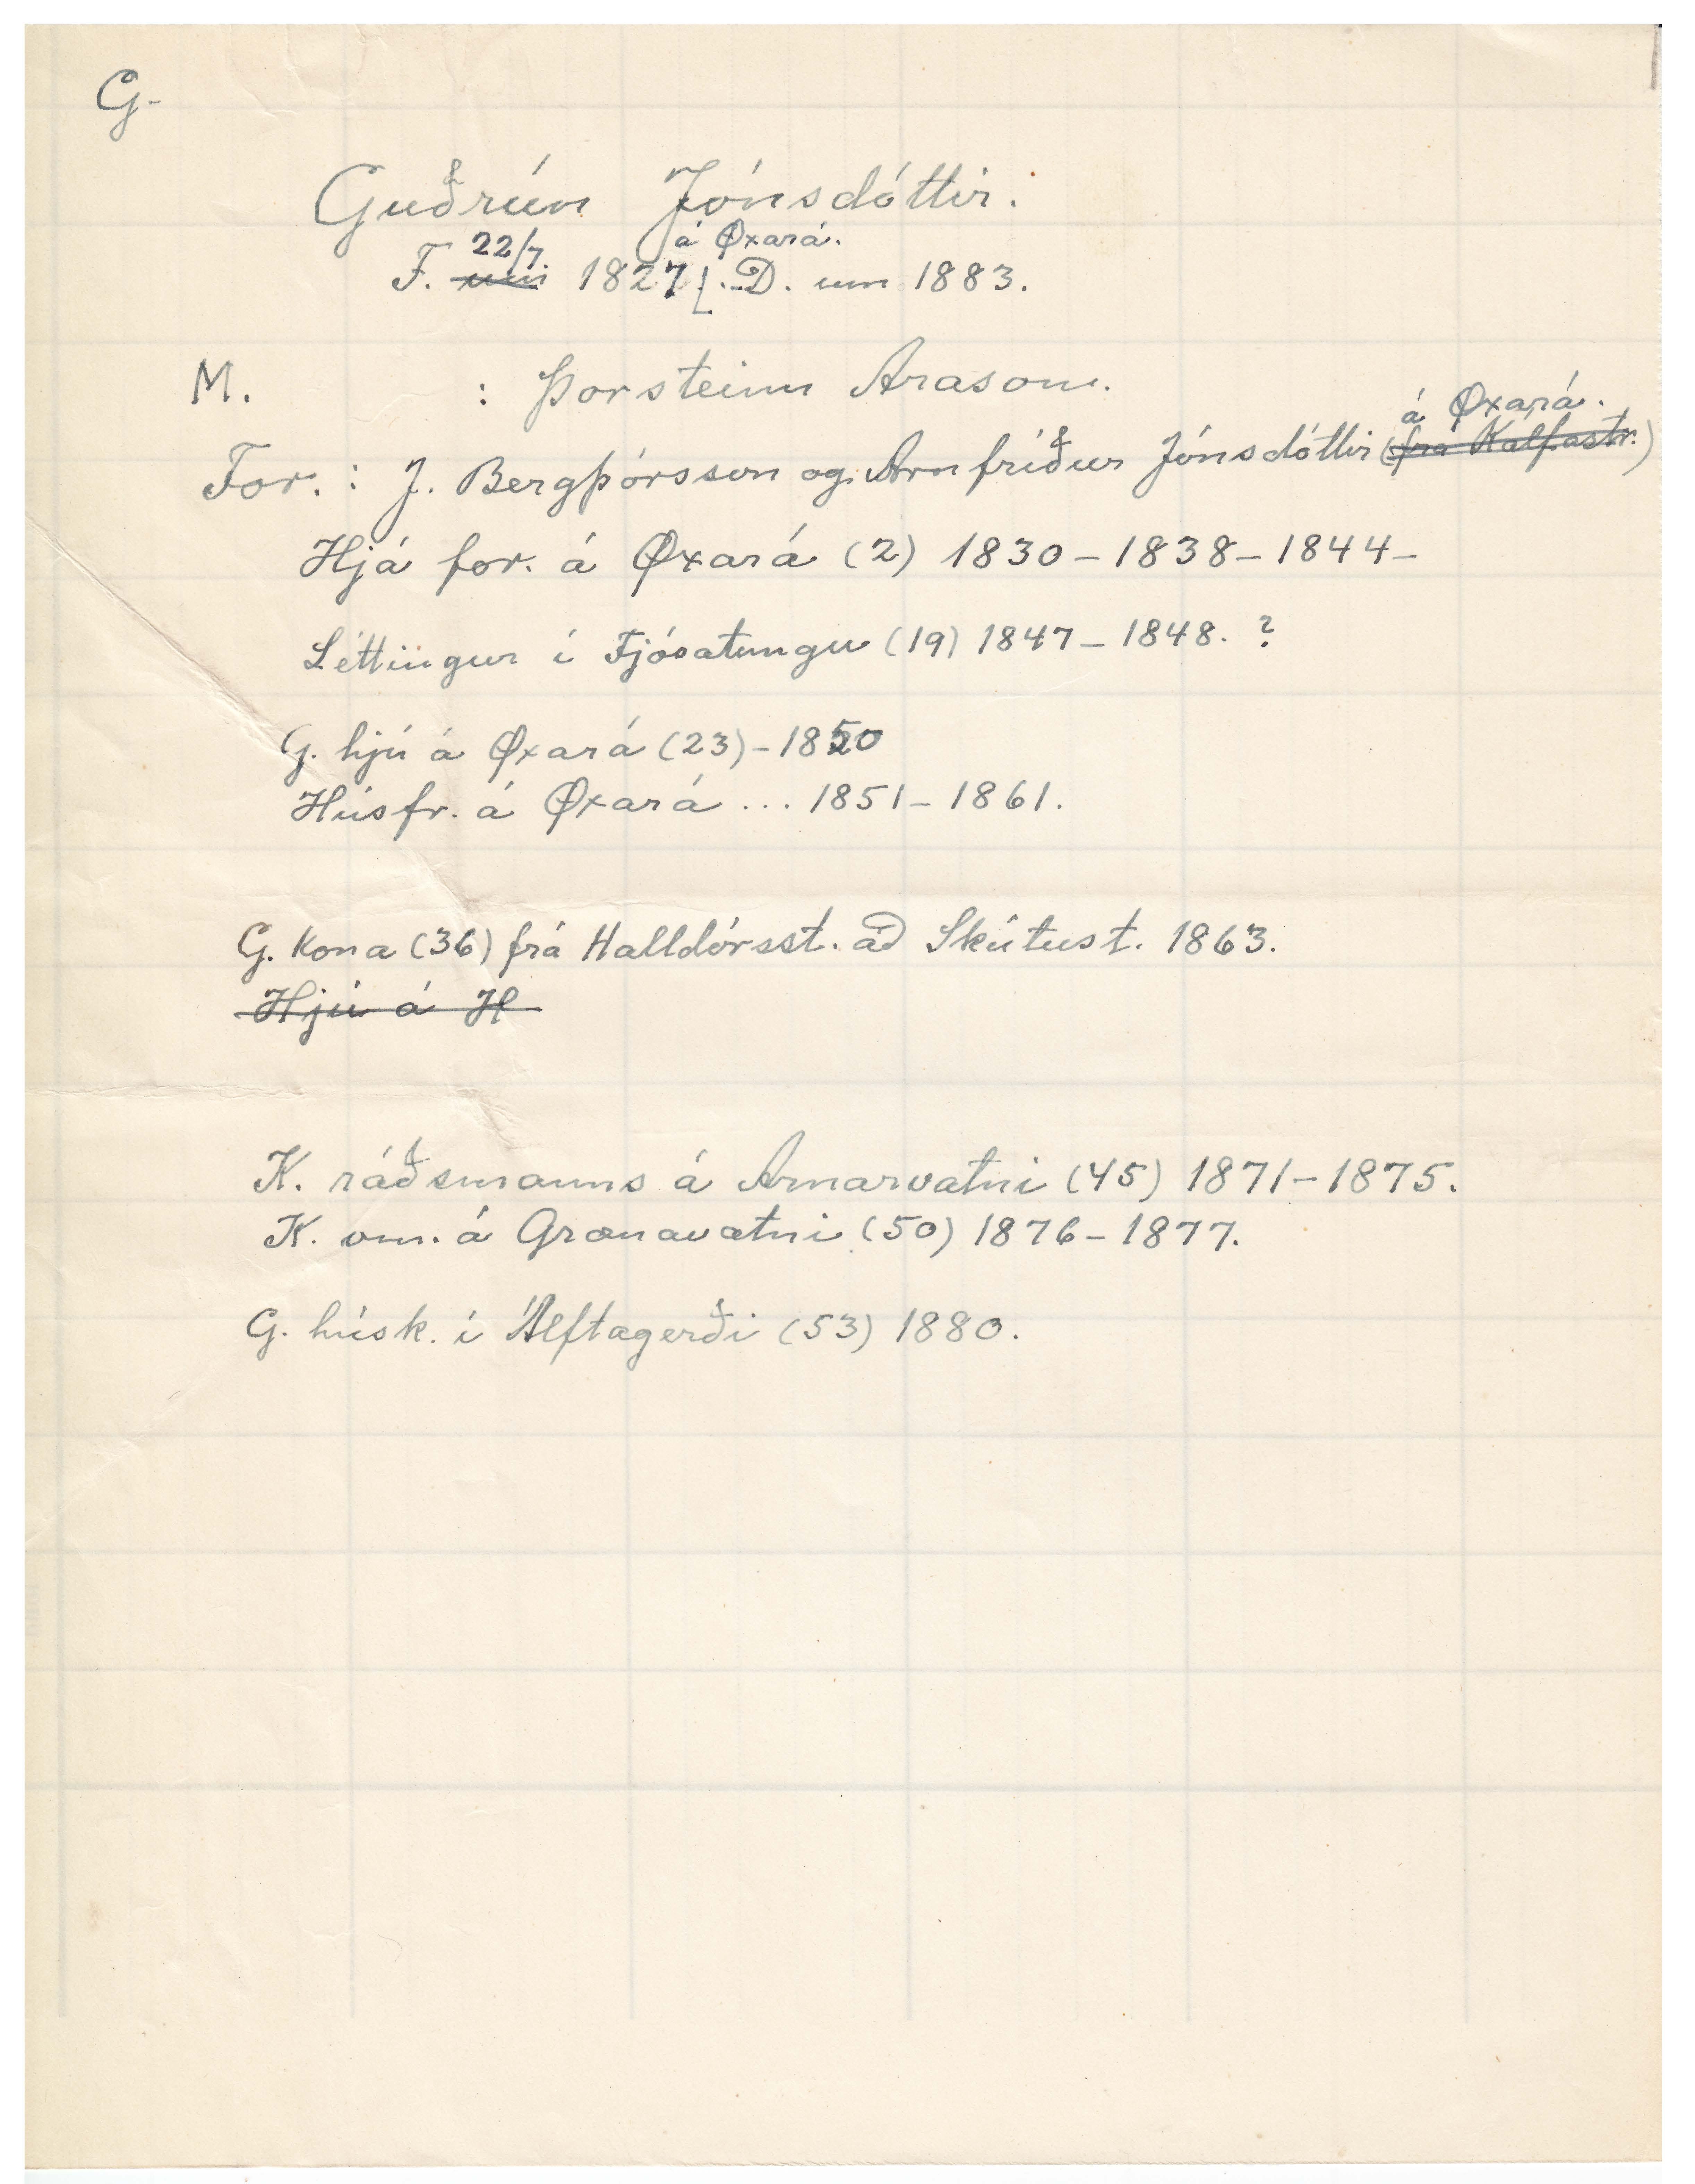 G-
Guðrún Jónsdóttir.
22/7. á Øxará.
F. um 1827 . D. um 1883.
M. : Þorsteinn Arason.
á Øxará.
For. : J. Bergþórsson og Arnfríður Jónsdóttir (frá Kálfastr.)
Hjá for. á Øxará (2) 1830 - 1838 - 1844 -
Léttingur í Fjósatungu (19) 1847 - 1848. ?
G. hjú á Øxará (23) - 1850
Húsfr. á Øxará ... 1851 - 1861.
G. Kona (36) frá Halldórsst. að Skútust. 1863.
Hjú á H
K. ráðsmanns á Arnarvatni (45) 1871 - 1875.
K. vm. á Grænavatni (50) 1876 - 1877.
G. húsk. í Álftagerði (53) 1880.